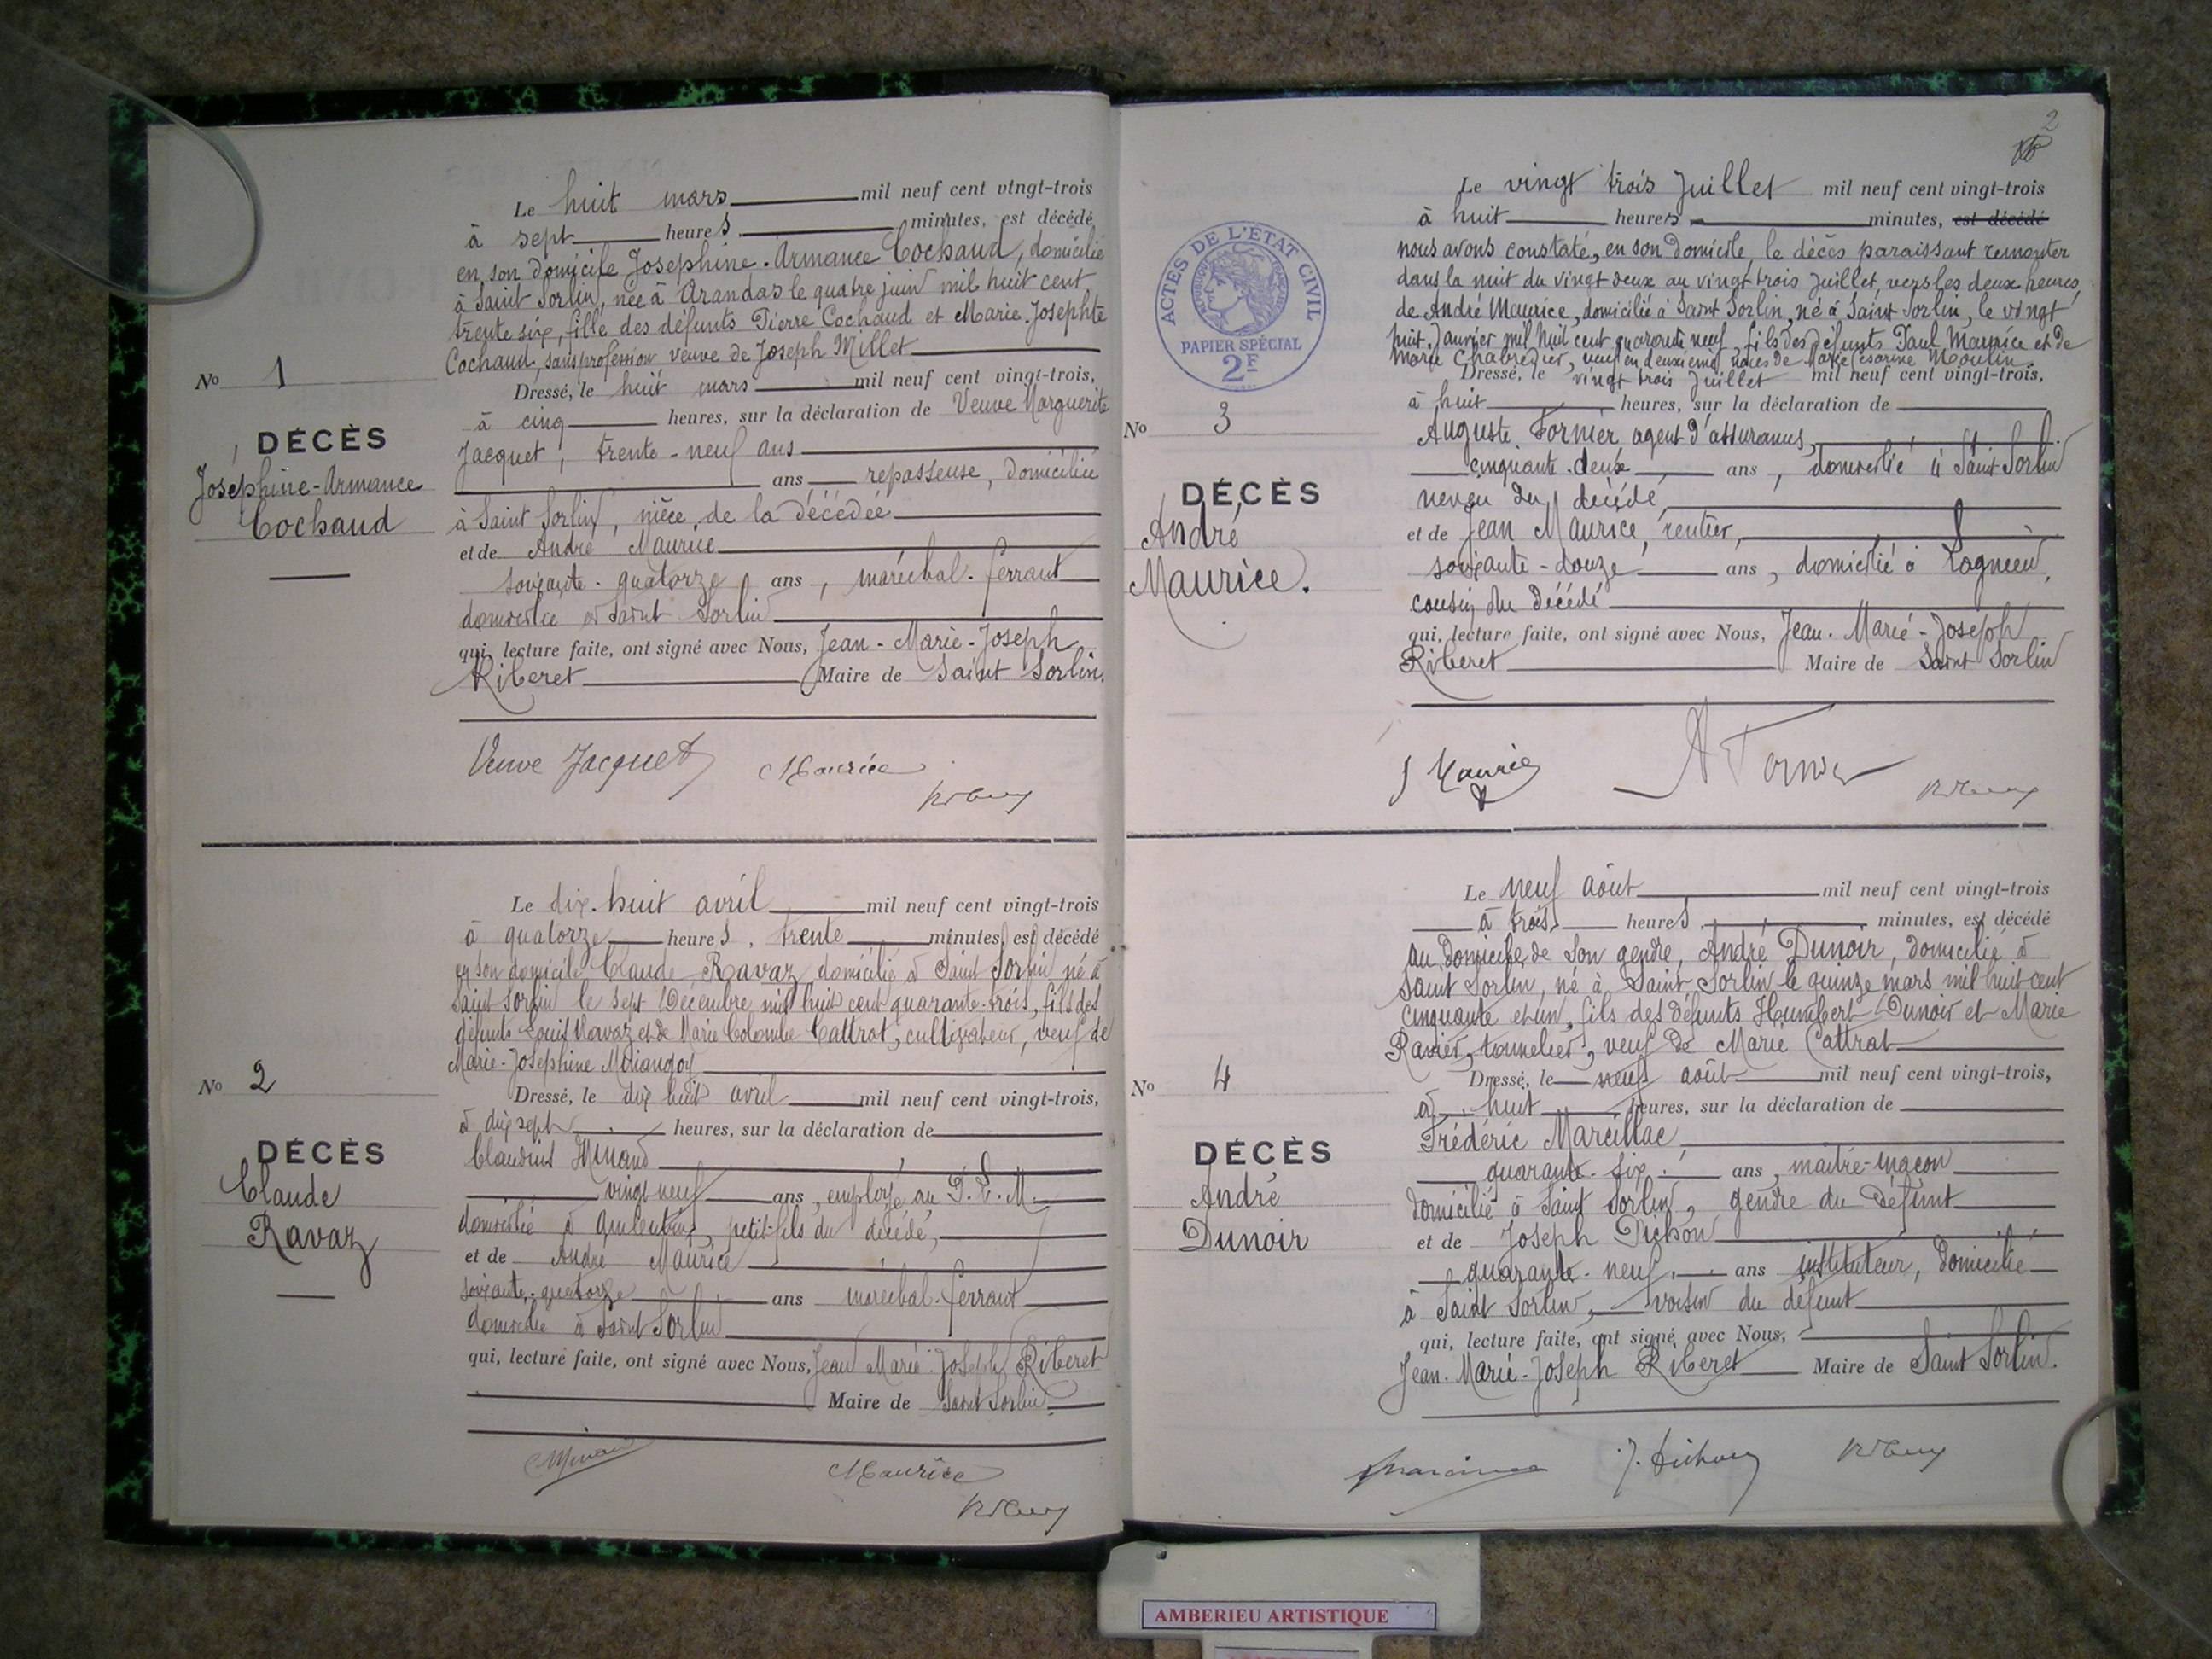 Le huit mars mil neuf cent vingt-trois
à sept heures minutes, est décédé
en son domicile Joséphine-Armance Cochaud, domicilié
à Saint Sorlin, née à Arandas le quatre juin mil huit cent
trente six, fille des défunts Pierre Cochaud et Marie-Josephte
Cochaud, sans profession veuve de Joseph Millet
No 1
Dressé, le huit mars mil neuf cent vingt-trois,
à cinq heures, sur la déclaration de Veuve Marguerite
DÉCÈS
Jacquet, trente-neuf ans
Joséphine-Armance
ans repasseuse, domiciliée
Cochaud
à Saint Sorlin, nièce de la décédée
et de André Maurice
soixante-quatorze ans, maréchal-ferrant
domicilié à Saint Sorlin
qui, lecture faite, ont signé avec Nous, Jean-Marie-Joseph
Riberet Maire de Saint Sorlin.
Veuve Jacquet Maurice
Le dix-huit avril mil neuf cent vingt-trois
à quatorze heures, trente minutes, est décédé
en son domicile Claude Ravaz, domicilié à Saint Sorlin né à
Saint Sorlin le sept Décembre mil huit cent quarante-trois, fils des
défunts Louis Ravaz et de Marie Colombe Cattrat, cultivateur, veuf de
Marie-Joséphine
No 2
Dressé, le dix huit avril mil neuf cent vingt-trois,
à dix sept heures, sur la déclaration de
DÉCÈS
Claudius Minand
Claude
vingt neuf ans, employé au P.L.M.
Ravaz
domicilié à petit-fils du décédé,
et de André Maurice
soixante-quatorze ans maréchal-ferrant
domicilié à Saint Sorlin
qui, lecture faite, ont signé avec Nous, Jean Marie-Joseph Riberet
Maire de Saint Sorlin.
Maurice
2
Le vingt trois Juillet mil neuf cent vingt-trois
à huit heures minutes, est décédé
nous avons constaté, en son domicile, le décès paraissant remonter
dans la nuit du vingt deux au vingt trois Juillet, vers les deux heures,
de André Maurice, domicilié à Saint Sorlin, né à Saint Sorlin, le vingt
huit Janvier mil huit cent quarante neuf, fils des défunts Paul Maurice et de
Marie Chabredier, veuf en deuxièmes noces de Marie Césarine Moulin.
ACTES DE L'ÉTAT CIVIL
PAPIER SPÉCIAL
2F
Dressé, le vingt trois Juillet mil neuf cent vingt-trois,
à huit heures, sur la déclaration de
No 3
Auguste Fornier agent d'assurances,
cinquante-deux ans, domicilié à Saint Sorlin
DÉCÈS
neveu du décédé,
André
Maurice.
et de Jean Maurice, rentier,
soixante-douze ans, domicilié à Lagnieu,
cousin du décédé
qui, lecture faite, ont signé avec Nous, Jean-Marie-Joseph
Riberet Maire de Saint Sorlin
J Maurice
Le neuf août mil neuf cent vingt-trois
à trois heures minutes, est décédé
au domicile de son gendre, André Dunoir, domicilié à
Saint Sorlin, né à Saint Sorlin le quinze mars mil huit cent
cinquante et un, fils des défunts Humbert Dunoir et Marie
Ravier, tonnelier, veuf de Marie Cattrat
No 4
Dressé, le neuf août mil neuf cent vingt-trois,
à huit heures, sur la déclaration de
Frédéric Marcillac
DÉCÈS
André
Dunoir
quarante-six ans, maître-maçon
domicilié à Saint Sorlin, gendre du défunt
et de Joseph Pichon
quarante-neuf ans instituteur, domicilié
à Saint Sorlin, voisin du défunt
qui, lecture faite, ont signé avec Nous,
Jean-Marie-Joseph Riberet Maire de Saint Sorlin.
AMBERIEU ARTISTIQUE